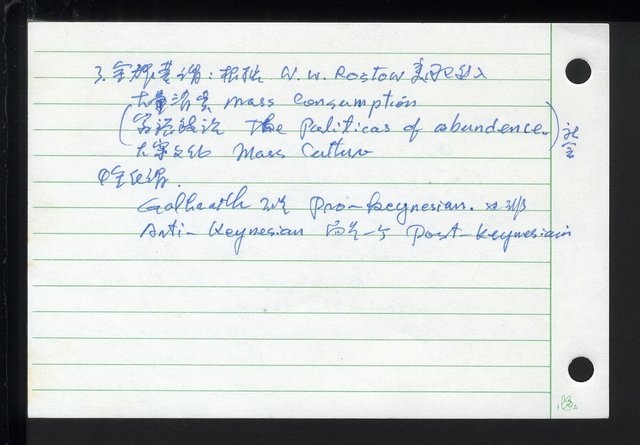 3. 金耀基謂：根據 W.W. Rostow 美已到入
大量消費 mass consumption
富裕政治 The Politicas of abundence. 社會
大眾文化 Mass Culture
④金氏謂.
Galbraith 非 Pro-keynesian. 亦非
Anti-keynesian 而是一 Post-keynesiain